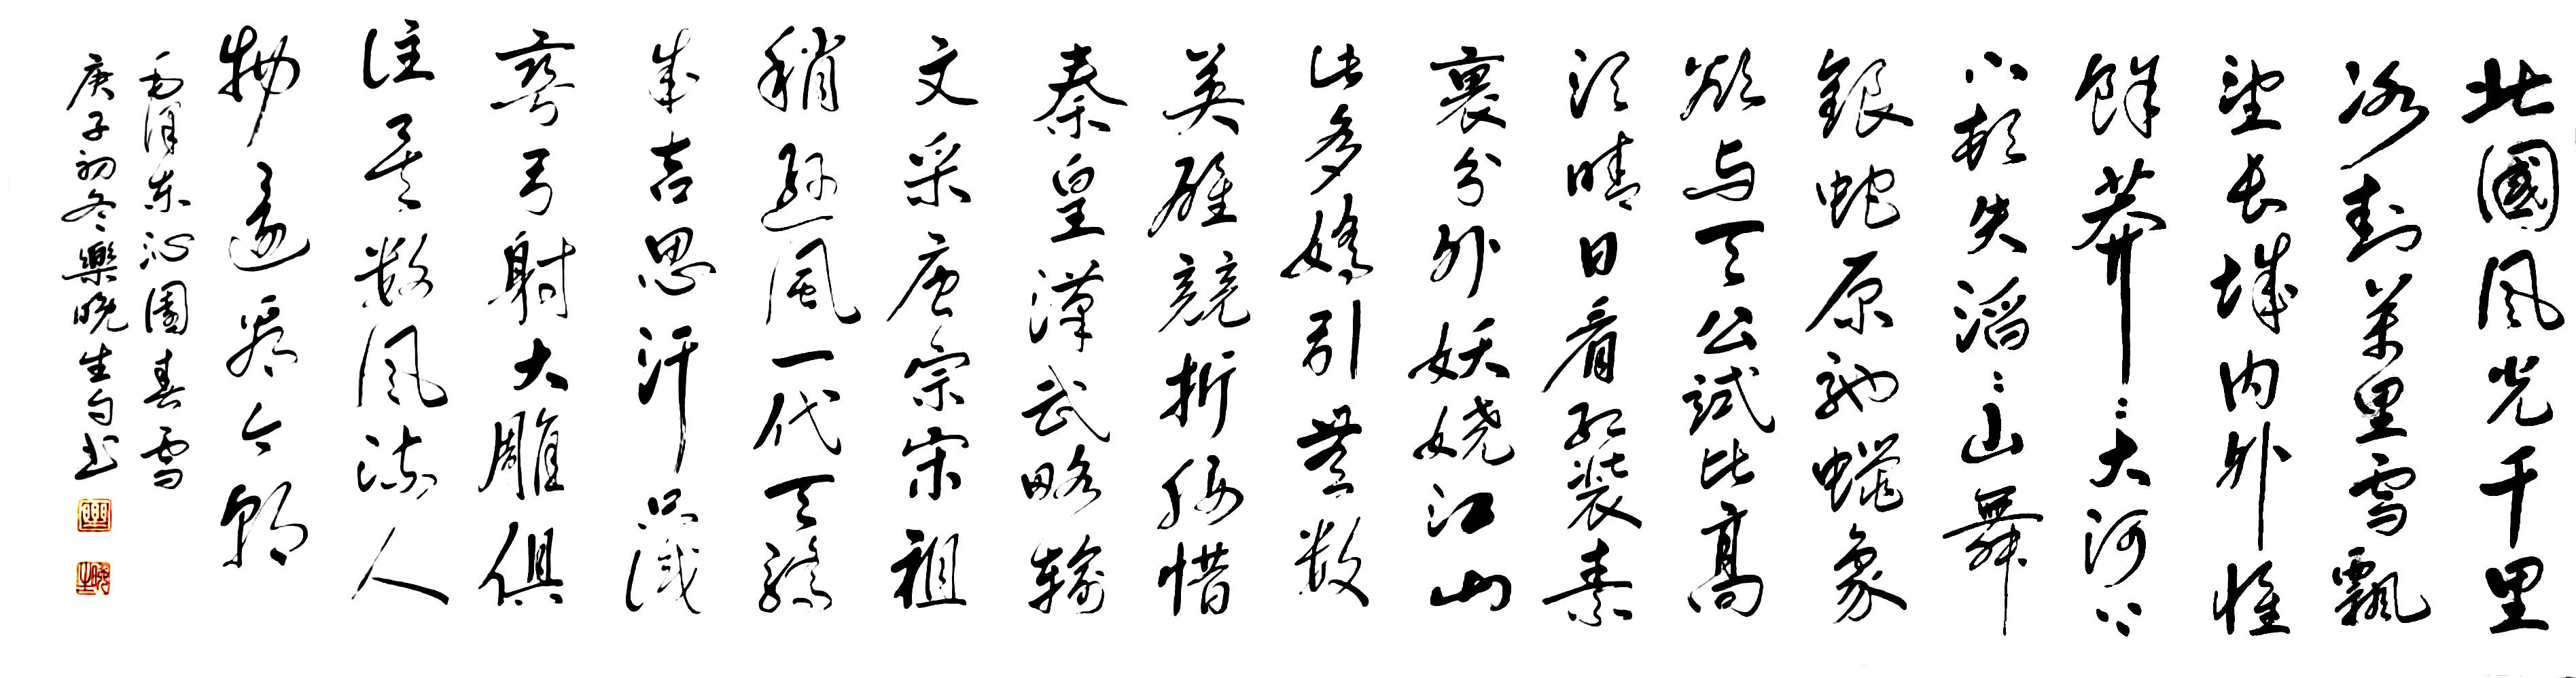 北國風光千里
冰封萬里雪飄
望長城内外惟
餘莽〻大河上
下頓失滔〻山舞
銀蛇原馳蠟象
欲与天公試比高
須晴日看紅裝素
裹分外妖嬈江山
此多嬌引無数
英雄競折腰惜
秦皇漢武略輸
文采唐宗宋祖
稍遜風一代天驕
成吉思汗只識
彎弓射大雕俱
往矣数風流人
物還看今朝
毛澤東沁園春雪
庚子初冬樂晚生书